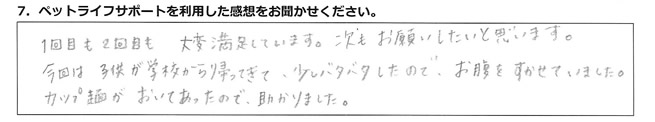 7. ペットライフサポートを利用した感想をお聞かせください。
1回目も2回目も 大変満足しています。次もお願いしたいと思います。
今回は子供が学校から帰ってきて、少しバタバタしたので、お腹をすかせていました。
カップ麺がおいてあったので、助かりました。